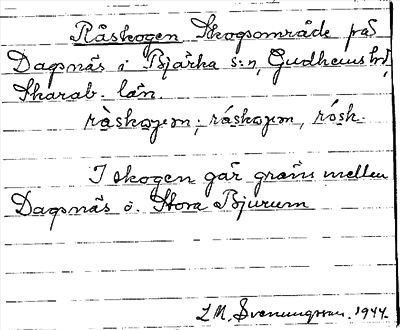 Råskogen Skogsområde på
Dagsnäs i Bjärka s:n, Gudhems hd,
Skarab. län.
ràskoɡ̣ɛn; ráskoɡ̣ɛn, rósk.
I skogen går gräns mellan
Dagsnäs o. Stora Bjurum
L M, Svenungsson. 1944.